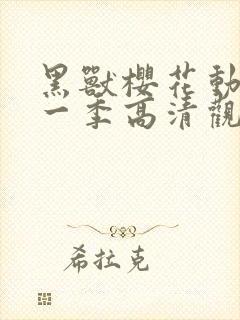 黑獸櫻花動
一季高清觀
希拉克